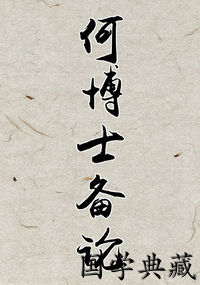 何博士备论
国学典藏